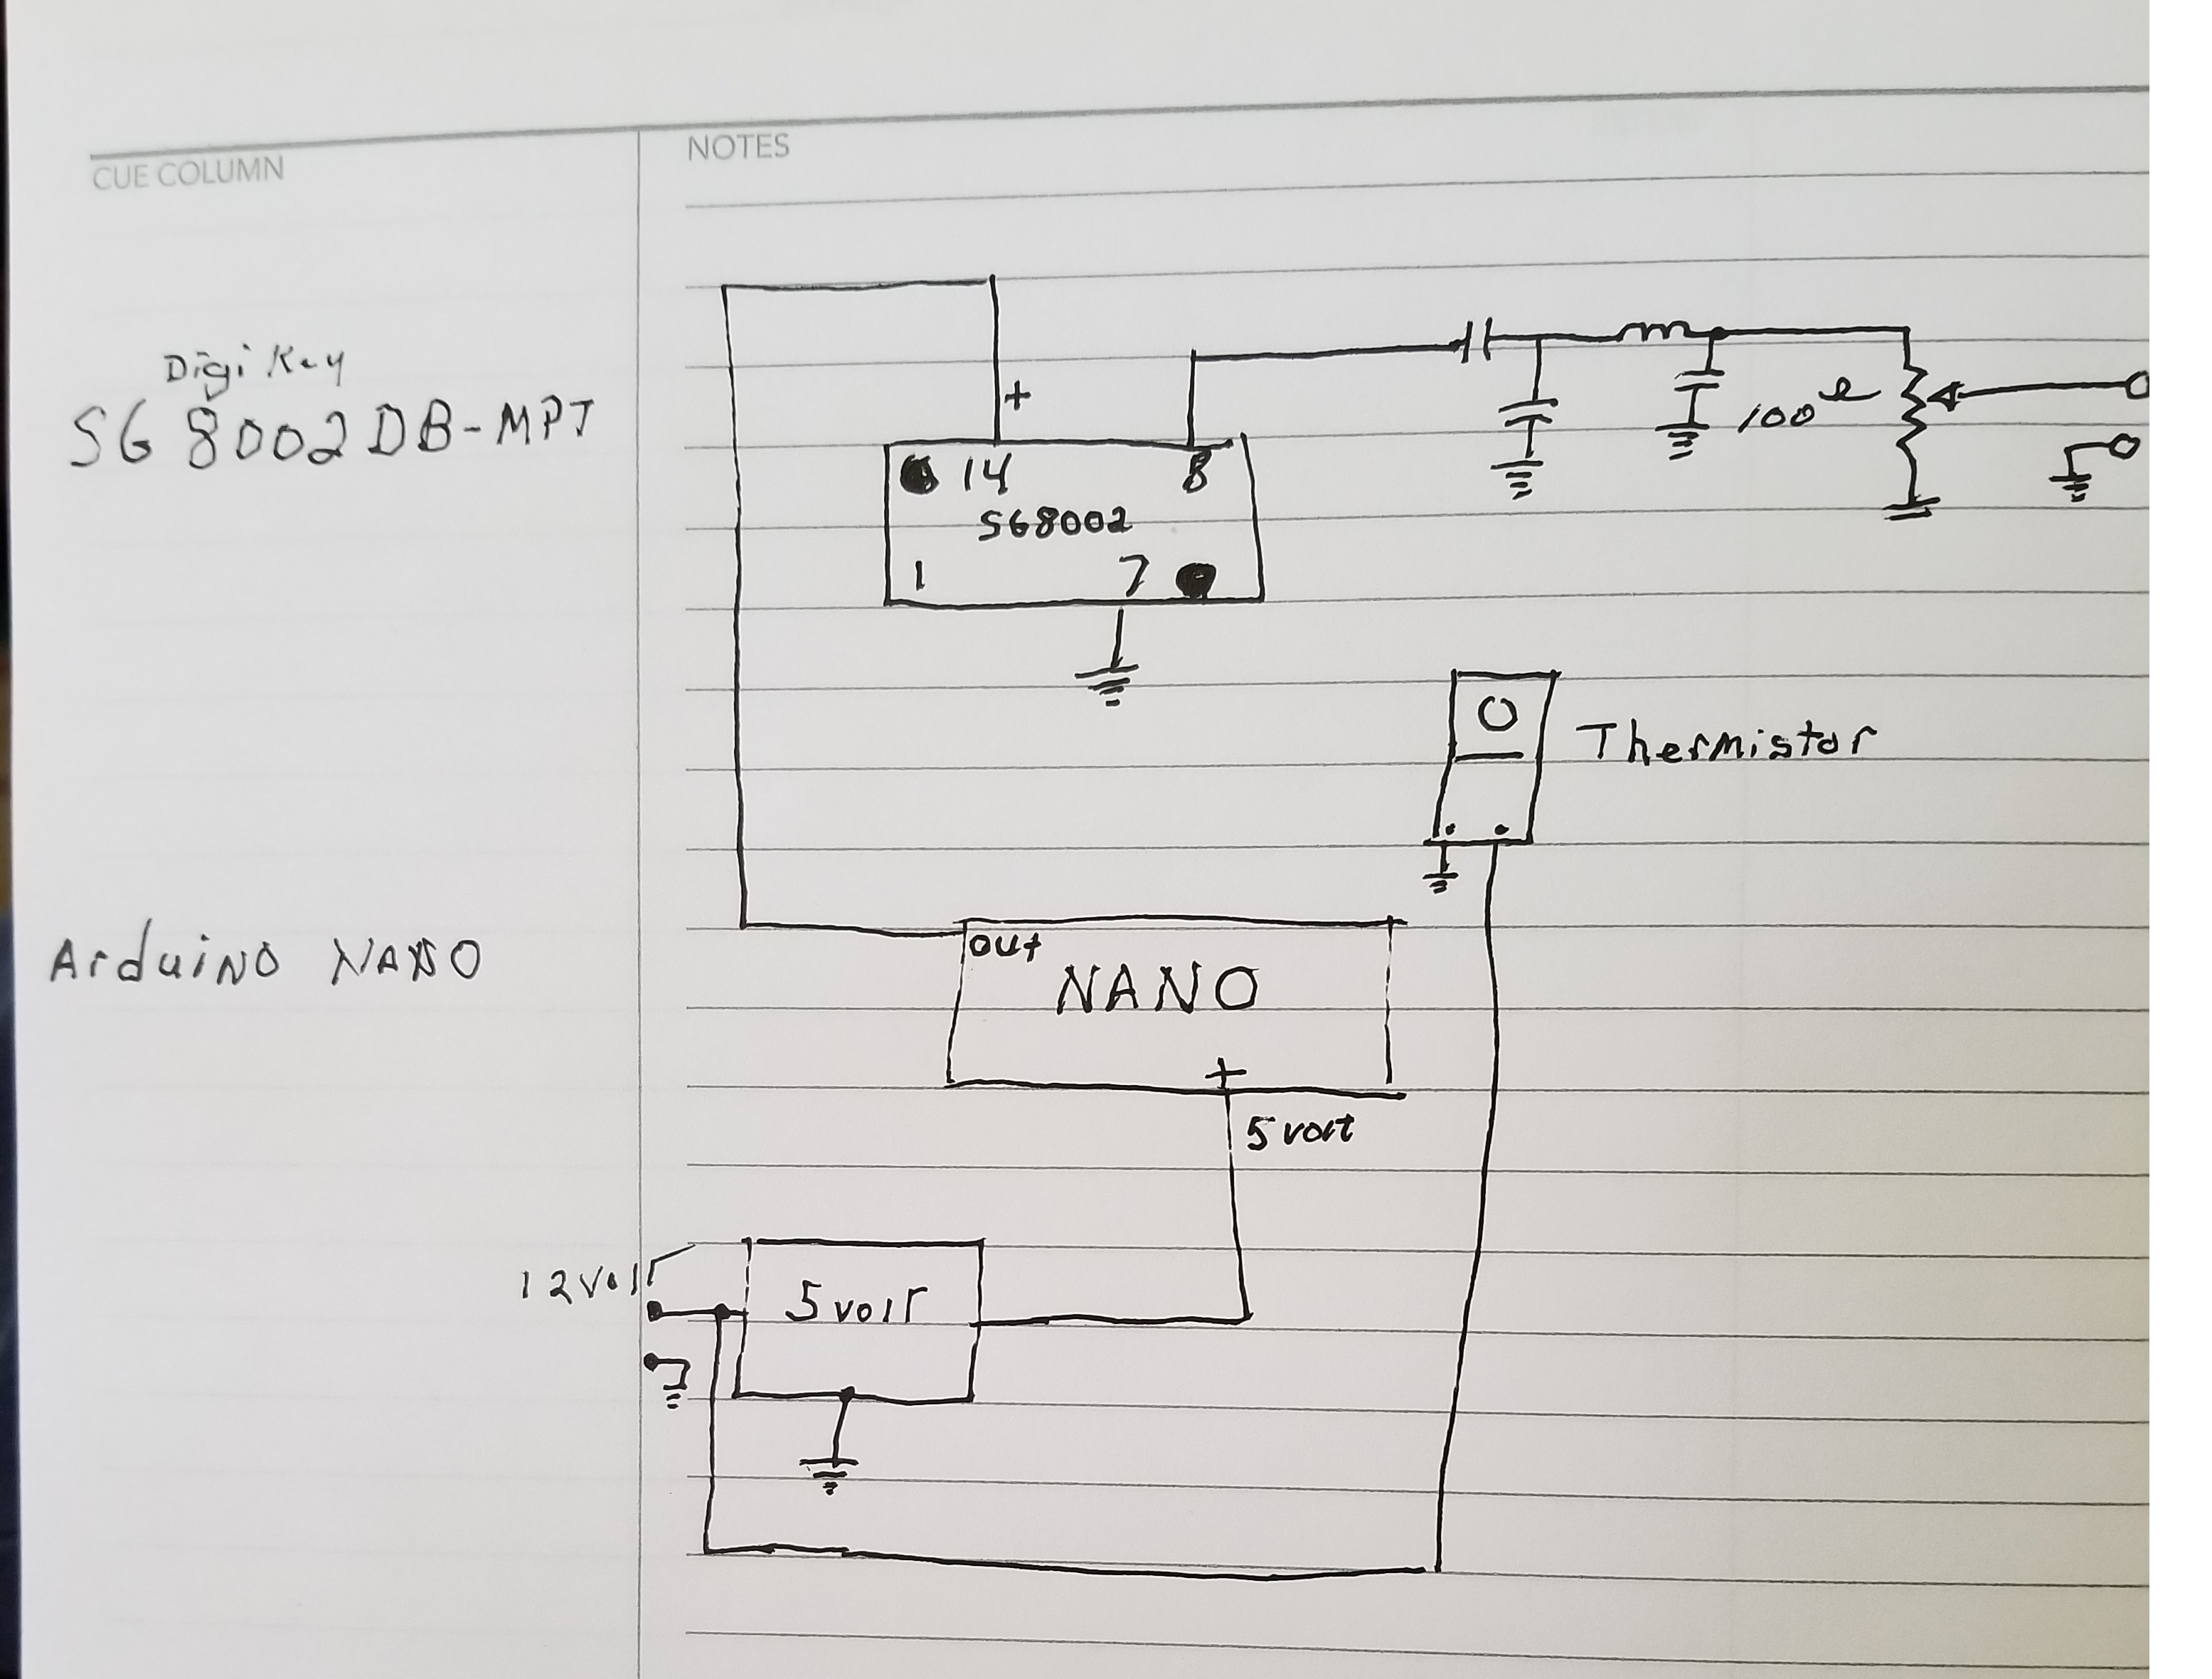 CUE COLUMN
NOTES
Digi Key
SG 8002DB-MPT
+
14 8
SG8002
1 7
100
Thermistor
out
NANO
Arduino NANO
+
5 volt
12Volt
5 volt